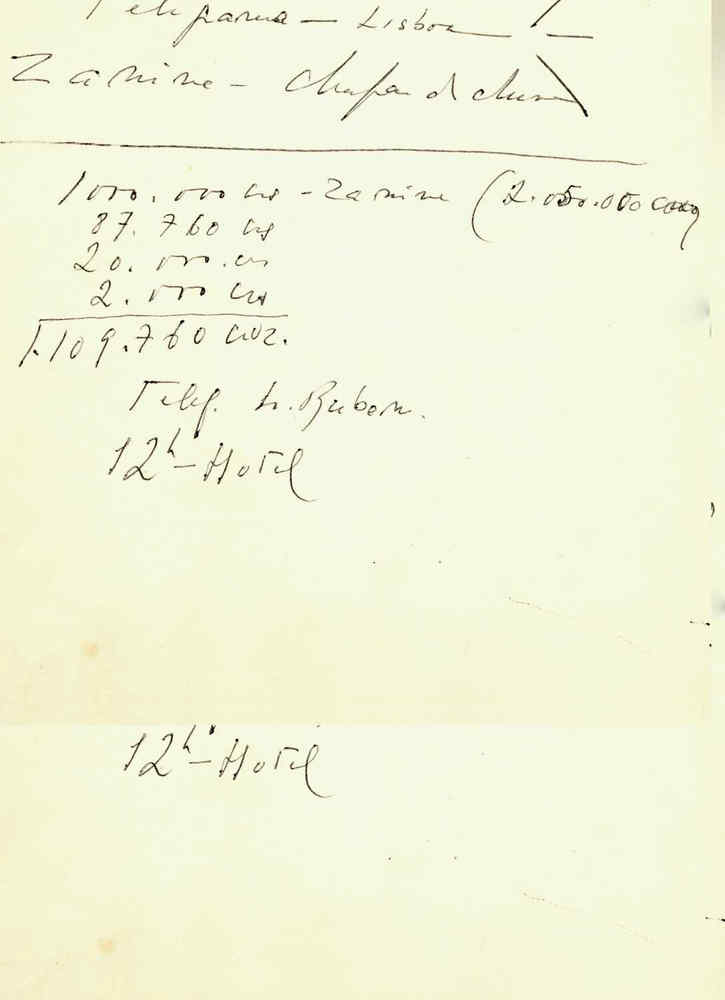 Lisboa —
Zanine – Chapa de
1000.000 crs – Zanine (2.050.000
87.760 crs
20.000.crs
2.000 crs
1.109.760 cruz.
Telef. Dr. Rubem.
12h – Hotel
12h – Hotel